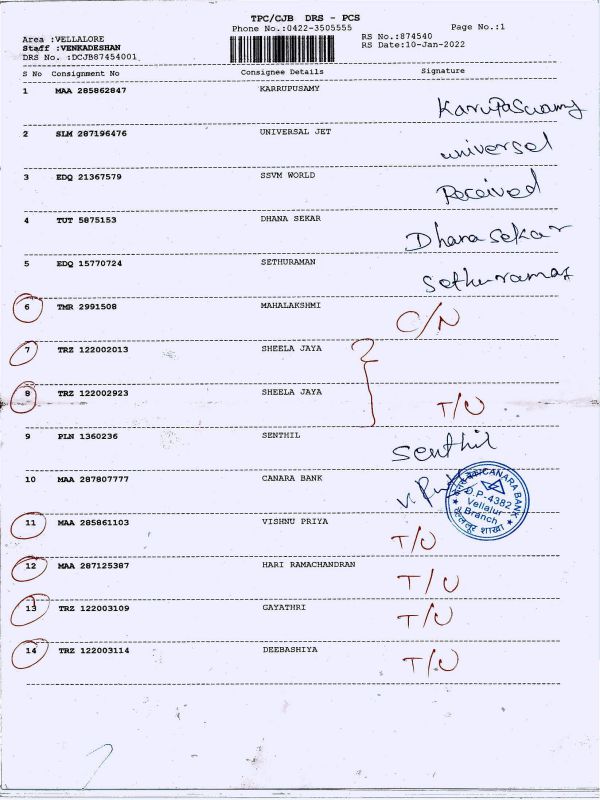 TPC/CJB DRS - PCS
Phone No.:0422-3505555
Page No.:1
Area :VELLALORE
RS No.:874540
Staff :VENKADESHAN
RS Date:10-Jan-2022
DRS No. :DCJB87454001
S No Consignment No Consignee Details Signature
1 MAA 285862847 KARRUPUSAMY
Karupaswamy
2 SLM 287196476 UNIVERSAL JET
universal
3 EDQ 21367579 SSVM WORLD
Received
4 TUT 5875153 DHANA SEKAR
Dhana sekar
5 EDQ 15770724 SETHURAMAN
Sethuraman
6 TMR 2991508 MAHALAKSHMI
C/N
7 TRZ 122002013 SHEELA JAYA
8 TRZ 122002923 SHEELA JAYA
T/U
9 PLN 1360236 SENTHIL
Senthil
10 MAA 287807777 CANARA BANK
CANARA BANK
D.P-4382
Vellalur
Branch
11 MAA 285861103 VISHNU PRIYA
T/U
12 MAA 287125387 HARI RAMACHANDRAN
T/U
13 TRZ 122003109 GAYATHRI
T/U
14 TRZ 122003114 DEEBASHIYA
T/U